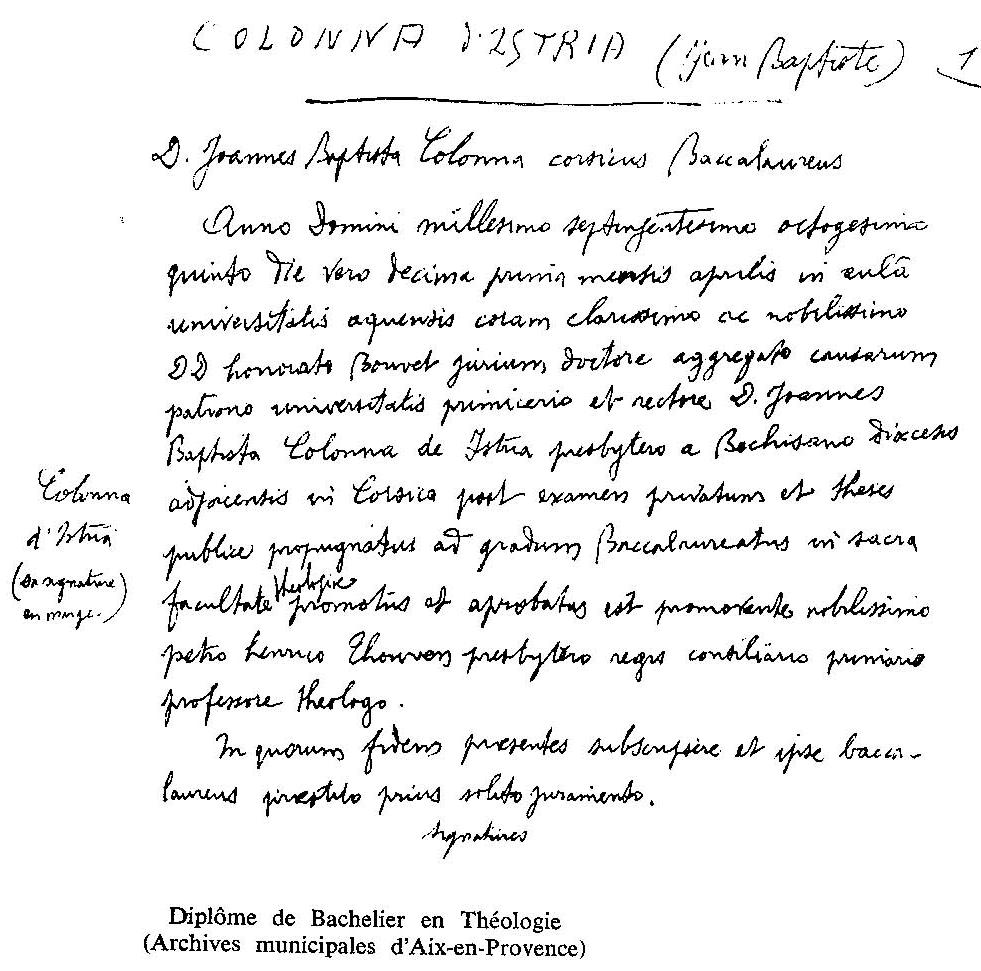 COLONNA D'ISTRIA (Jean Baptiste) 1
D. Joannes Baptista Colonna corsicus Baccalaureus
Anno Domini millesimo septingentesimo octogesimo
quinto die vero decima prima mensis aprilis in aulâ
universitatis aquensis coram clarissimo ac nobilissimo
DD honorato Bouvet jurium doctore aggregato causarum
patrono universitatis primicerio et rectore D. Joannes
Baptista Colonna de Istria presbytero a Bechisano dioecesis
adjacensis in Corsica post examen privatum et theses
publice propugnatus ad gradum Baccalaureatus in sacra
facultate theologiae promotus et aprobatus est promovente nobilissimo
petro henrico presbytero regis consiliario primario
professore theologo.
In quorum fidem praesentes subscripsere et ipse bacca-
laureus praestito prius solito juramento.
signatures
Colonna
d'Istria
(sa signature
en marge.)
Diplôme de Bachelier en Théologie
(Archives municipales d'Aix-en-Provence)